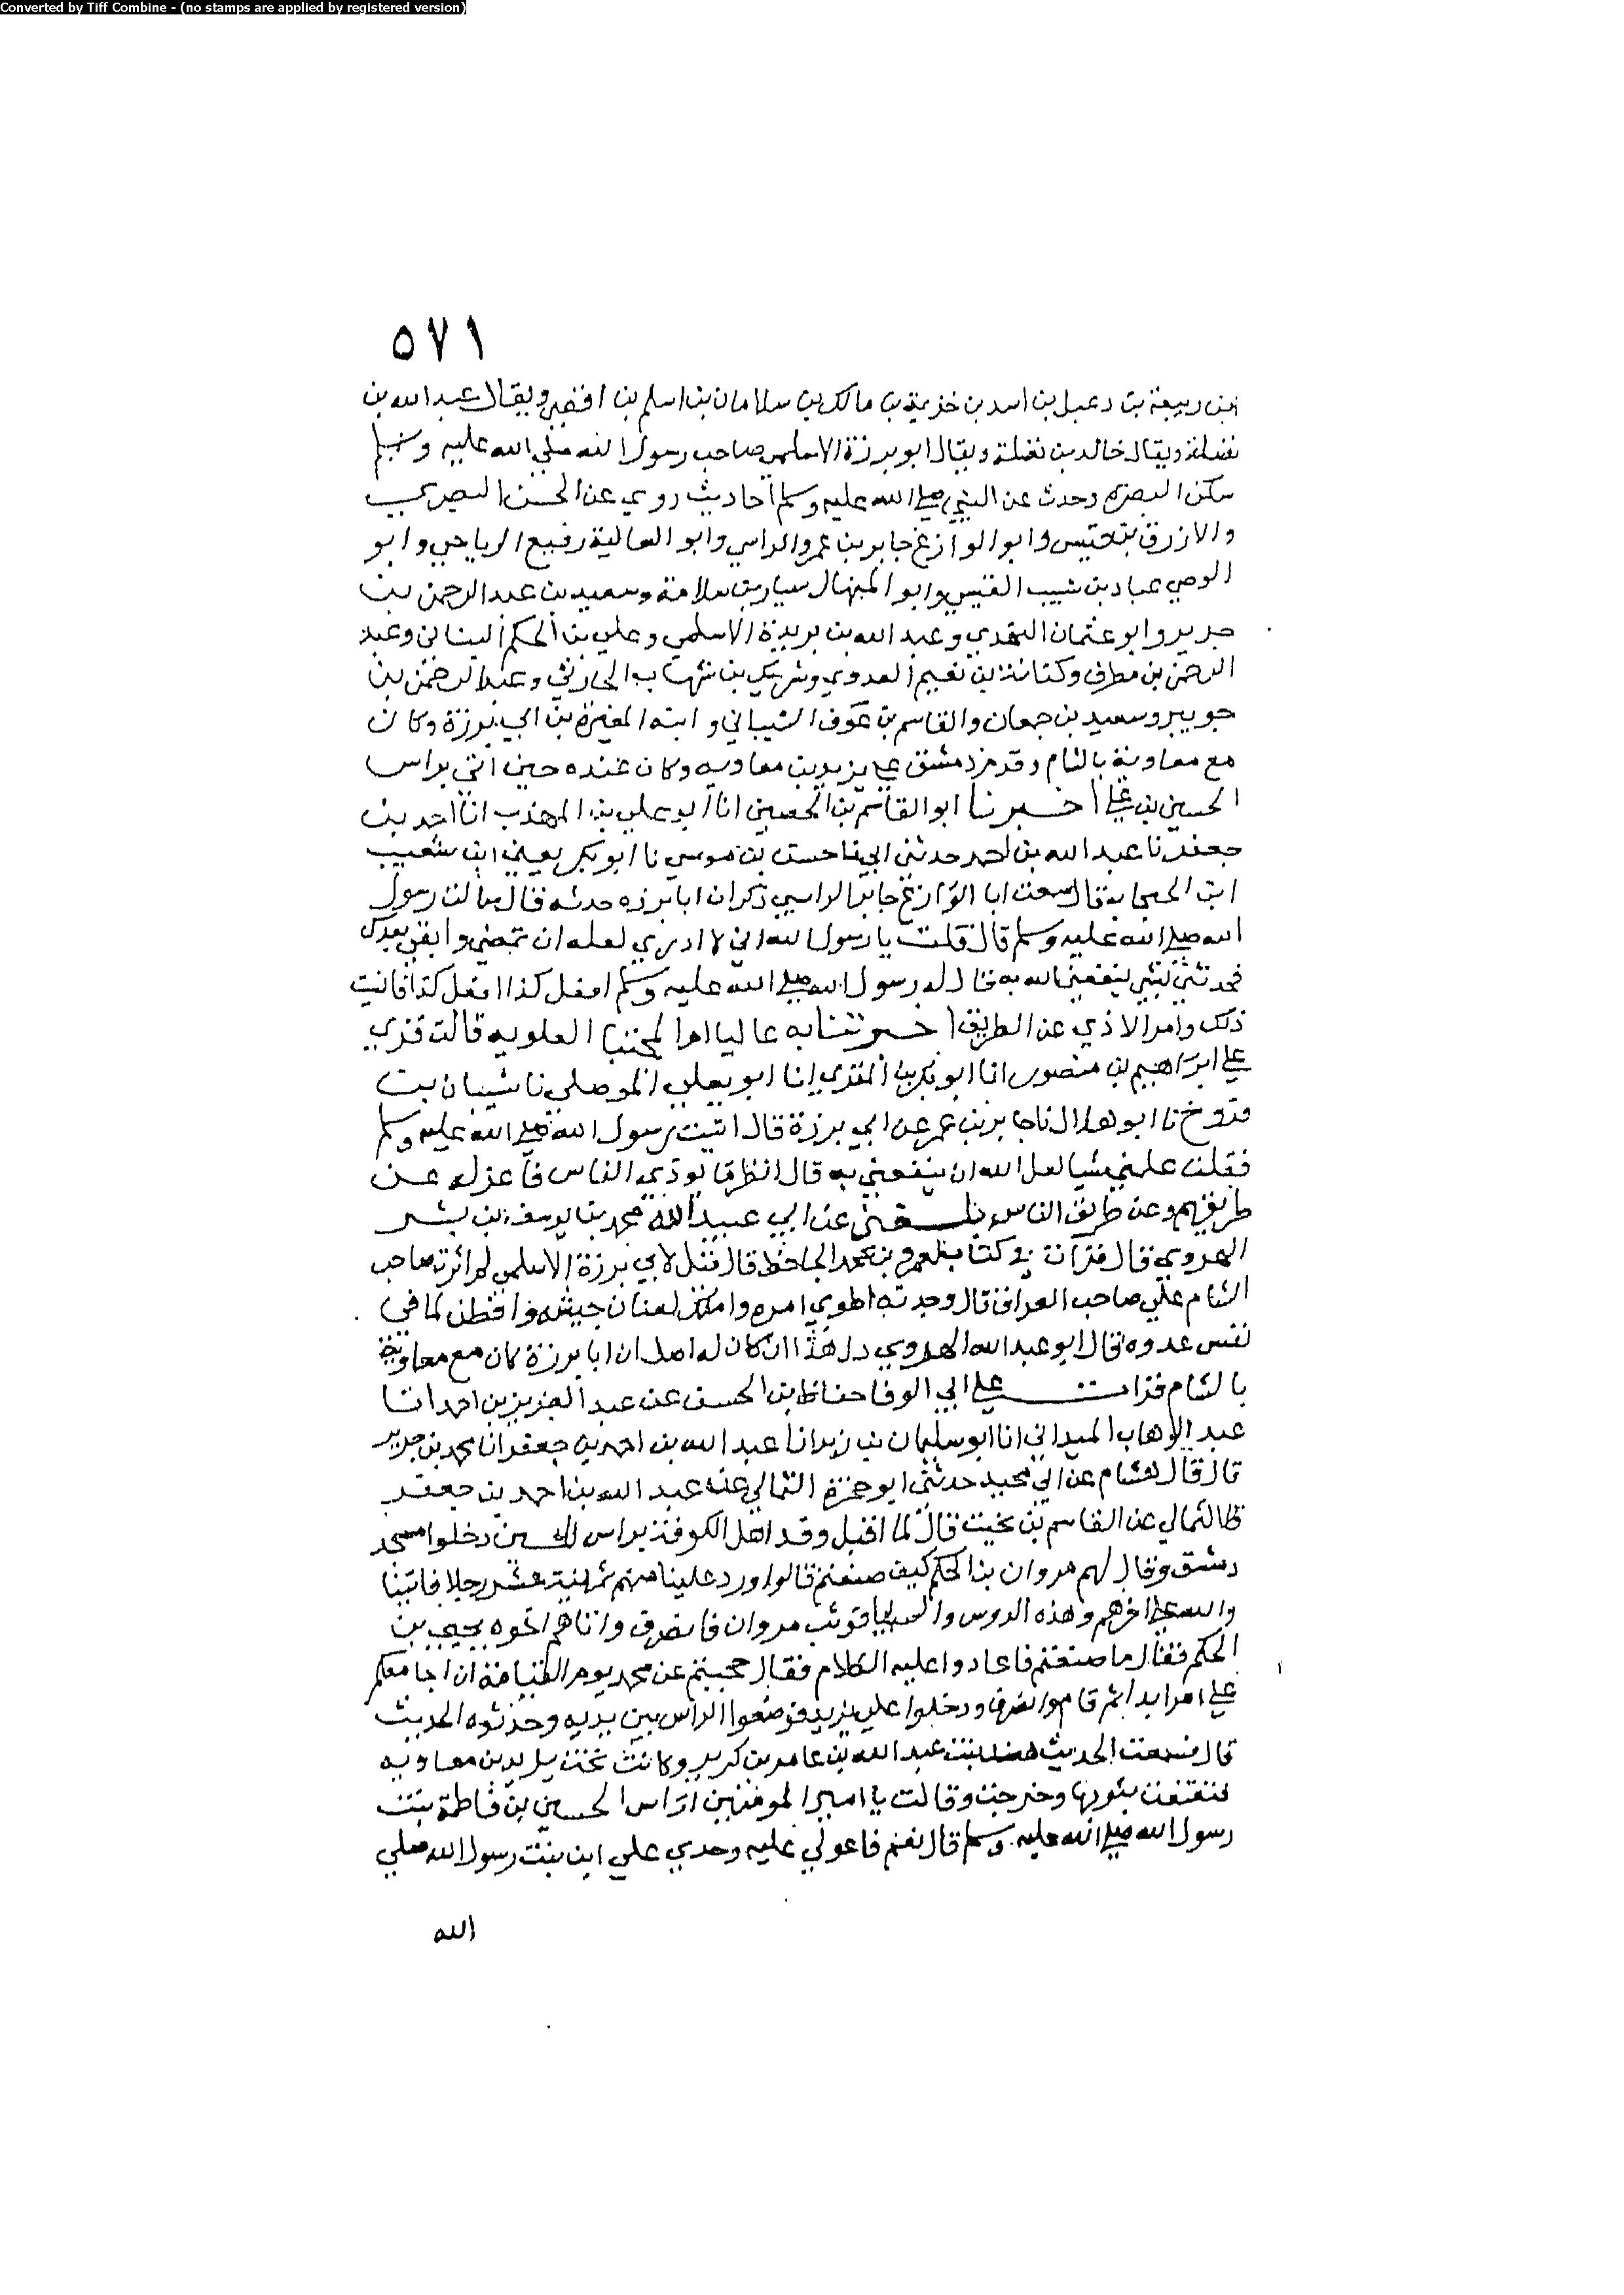 Converted by Tiff Combine - (no stamps are applied by registered version)
٥٧١
بن ربيعة بن دعبل بن اسد بن خزيمة بن مالك بن سلامان بن اسلم بن افصى ويقال عبد الله بن
نضلة ويقال خالد بن نضلة ويقال ابو برزة الاسلمي صاحب رسول الله صلى الله عليه وسلم
سكن البصره وحدث عن النبي صلى الله عليه وسلم احاديث روي عن الحسن البصري
والازرق بن قيس وابو الوازع جابر بن عمرو الراسبي وابو العالية رفيع الرياحي وابو
الوصي عباد بن شبيب القيسي وابو المنهال سيار بن سلامة وسعيد بن عبد الرحمن بن
جرير وابو عثمان النهدي وعبد الله بن بريدة الاسلمي وعلي بن الحكم البناني وعبد
الرحمن بن مطرف وكنانة بن نعيم العدوي وشريك بن شهاب الحارثي وعبد الرحمن بن
جويبر وسعيد بن جمعان والقاسم بن عوف الشيباني وابنه المغيرة بن ابي برزة وكان
مع معاوية بالشام وقدم دمشق على يزيد بن معاويه وكان عنده حين اتي براس
الحسين بن علي اخبرنا ابو القاسم بن الحصين انا ابو علي بن المذهب انا احمد بن
جعفر نا عبد الله بن احمد حدثني ابي نا حسن بن موسي نا ابو بكر يعني ابن شعيب
ابن الحبحاب قال سمعت ابا الوازع جابر الراسبي ذكر ان ابا برزه حدثه قال سالت رسول
الله صلى الله عليه وسلم قال قلت يا رسول الله اني لا ادري لعله ان تمضي وابقى بعدك
فحدثني بشي ينفعني الله به فقال له رسول الله صلى الله عليه وسلم افعل كذا افعل كذا
ذلك وامر الاذي عن الطريق اخبرتنا به عاليا ام المجتبا العلويه قالت قري
على ابراهيم بن منصور انا ابو بكر بن المقري انا ابو يعلي الموصلي نا شيبان بن
فروخ نا ابو هلال نا جابر بن عمر عن ابي برزة قال اتيت رسول الله صلى الله عليه وسلم
فقلت علمني شيا لعل الله ان ينفعني به قال انظر ما يوذي الناس فاعزله عن
طريقهم وعن طريق الناس بلغني عن ابي عبيد الله محمد بن يوسف بن بشر
الهروي قال قرات في كتاب عمرو بن محمد الجاحظ قال قيل لابي برزة الاسلمي لم اثرت صاحب
الشام علي صاحب العراق قال وجدته اطوي امره واملك لعنان جيشه وافطن لما في
نفس عدوه قال ابو عبد الله الهروي دل هذا ان كان له اصل ان ابا برزة كان مع معاوية
بالشام قرات على ابي الوفا حفاظ بن الحسن عن عبد العزيز بن احمد انا
عبد الوهاب الميداني انا ابو سليمان بن زبر انا عبد الله بن احمد بن جعفر انا محمد بن جرير
قال قال هشام عن ابي مخنف حدثني ابو حمزه الثمالي عن عبد الله بن احمد بن جعفر
الثمالي عن القاسم بن بخيت قال لما اقبل وفد اهل الكوفة براس الحسين دخلوا مسجد
دمشق وقال لهم مروان بن الحكم كيف صنعتم قالوا ورد علينا منهم ثمانية عشر رجلا فاتينا
والله على اخرهم وهذه الروس والسبايا فوثب مروان فانصرف واتاهم اخوه يحيى بن
الحكم فقال ما صنعتم فاعادوا عليه الكلام فقال حجبتم عن محمد يوم القيامة ان اجامعكم
على امر ابدا ثم قام وانصرف ودخلوا علي يزيد فوضعوا الراس بين يديه وحدثوه الحديث
قال فسمعت الحديث هند بنت عبد الله بن عامر بن كريز وكانت تحت يزيد بن معاويه
فتقنعت بثوبها وخرجت وقالت يا امير المومنين اراس الحسين بن فاطمة بنت
رسول الله صلى الله عليه وسلم قال نعم فاعولي عليه وحدي علي ابن بنت رسول الله صلي
الله